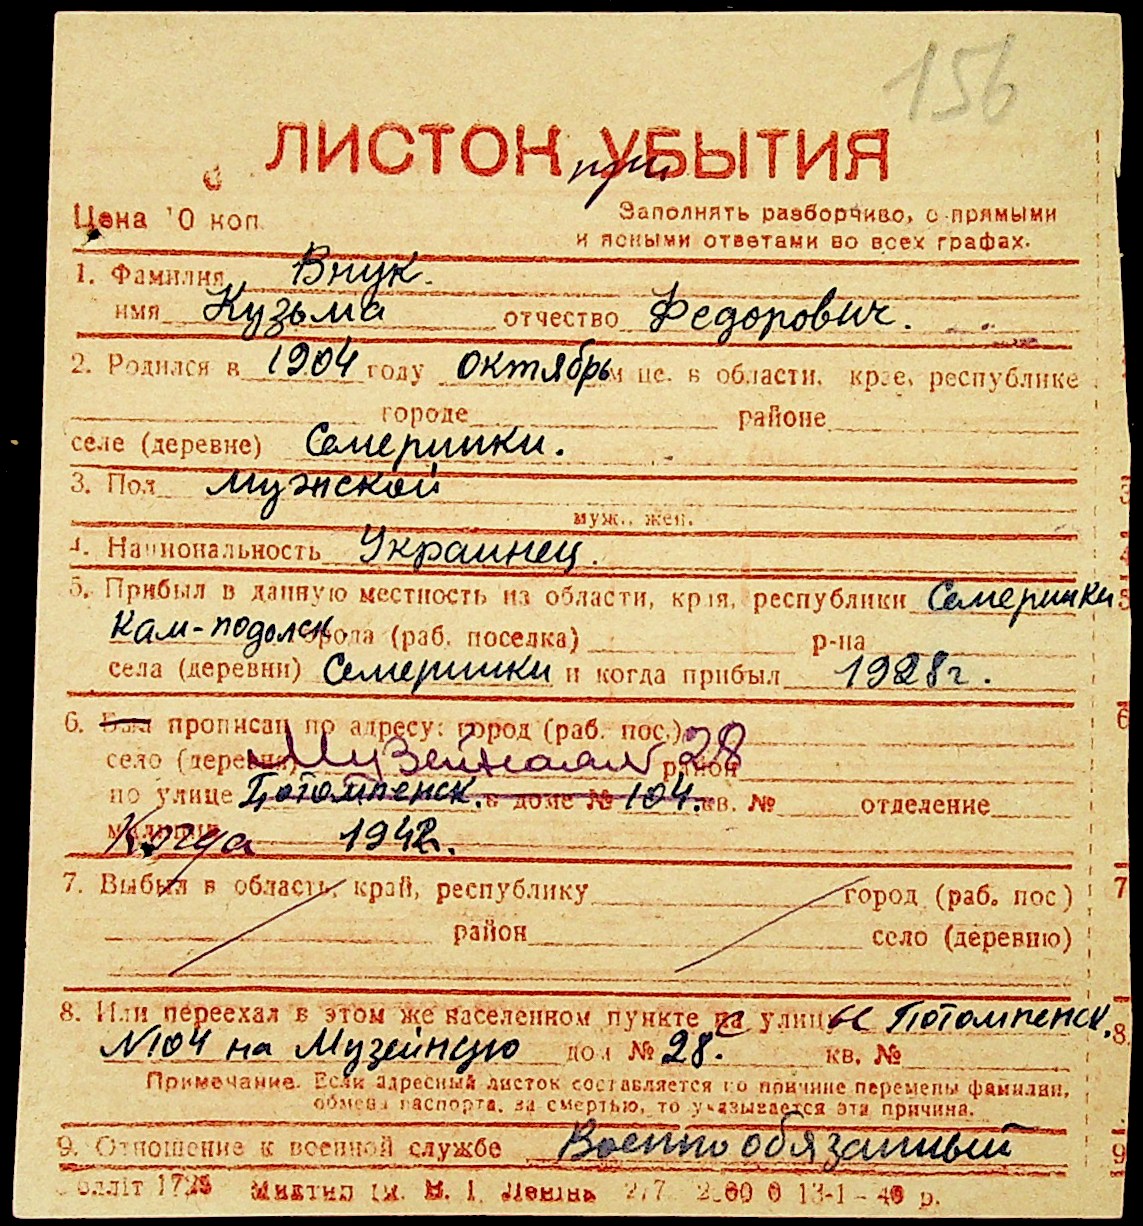 156
ЛИСТОК УБЫТИЯ
при
Цена 10 коп.
Заполнять разборчиво, с прямыми
и ясными ответами во всех графах.
1. Фамилия Внук.
имя Кузьма отчество Федорович.
2. Родился в 1904 году октябрь м-це. в области, крае, республике
городе районе
селе (деревне) Семеринки.
3. Пол мужской
муж., жен.
4. Национальность Украинец.
5. Прибыл в данную местность из области, края, республики Семеринки
Кам-подольск города (раб. поселка) р-на
села (деревни) Семеринки и когда прибыл 1928 г.
6. Был прописан по адресу: город (раб. пос.)
село (деревня) Музейная 28 район
по улице Потомпенск. в доме № 104. кв. № отделение
милиции Когда 1942.
7. Выбыл в область, край, республику город (раб. пос)
район село (деревню)
8. Или переехал в этом же населенном пункте с улицы Потомпенск.
№104 на Музейную дом № 28. кв. №
Примечание. Если адресный листок составляется по причине перемены фамилии,
обмена паспорта, за смертью, то указывается эта причина.
9. Отношение к военной службе Военнообязанный